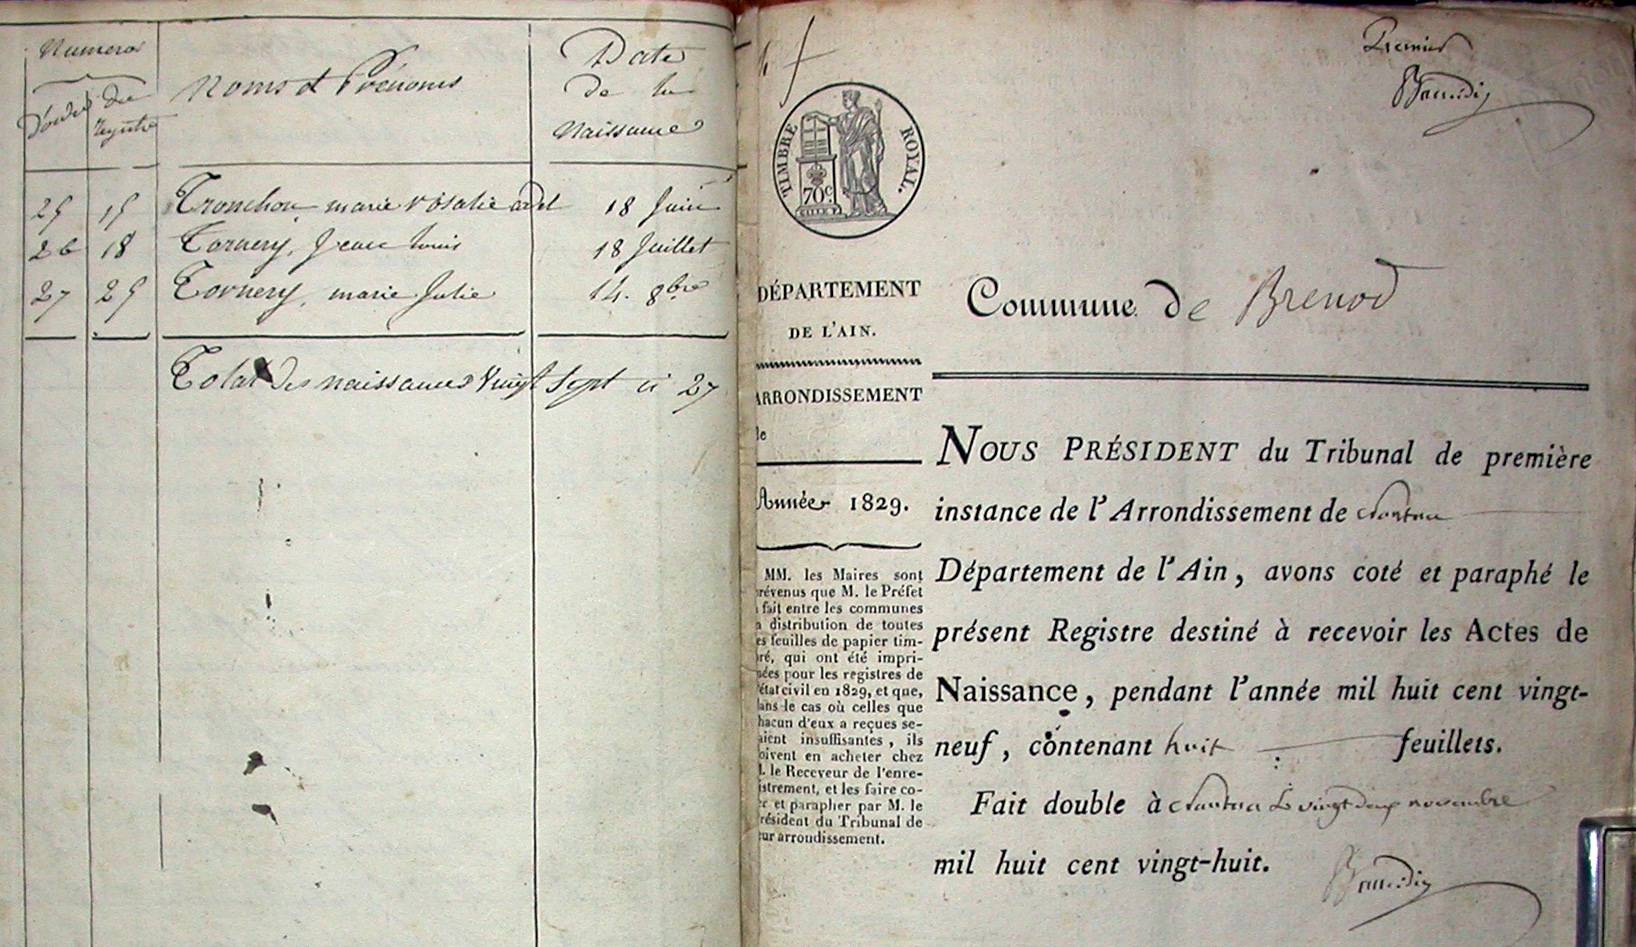 Numeros
d'ordre
du
Registre
Noms et Prénoms
Date
de la
Naissance
25 15 Tronchon marie rosalie adel 18 Juin
26 18 Tornery, Jean Louis 18 Juillet
27 25 Tornery, marie Julie 14. 8bre
Total des naissances Vingt Sept ci 27
TIMBRE ROYAL.
70c.
DÉPARTEMENT
DE L'AIN.
ARRONDISSEMENT
de
Année 1829.
MM. les Maires sont
prévenus que M. le Préfet
a fait entre les communes
la distribution de toutes
les feuilles de papier tim-
bré, qui ont été impri-
mées pour les registres de
l'état civil en 1829, et que,
dans le cas où celles que
chacun d'eux a reçues se-
raient insuffisantes, ils
doivent en acheter chez
M. le Receveur de l'enre-
gistrement, et les faire co-
ter et parapher par M. le
Président du Tribunal de
leur arrondissement.
Premier
Commune de Brenod
NOUS PRÉSIDENT du Tribunal de première
instance de l'Arrondissement de Nantua
Département de l'Ain, avons coté et paraphé le
présent Registre destiné à recevoir les Actes de
Naissance, pendant l'année mil huit cent vingt-
neuf, contenant huit feuillets.
Fait double à Nantua le vingt deux novembre
mil huit cent vingt-huit.